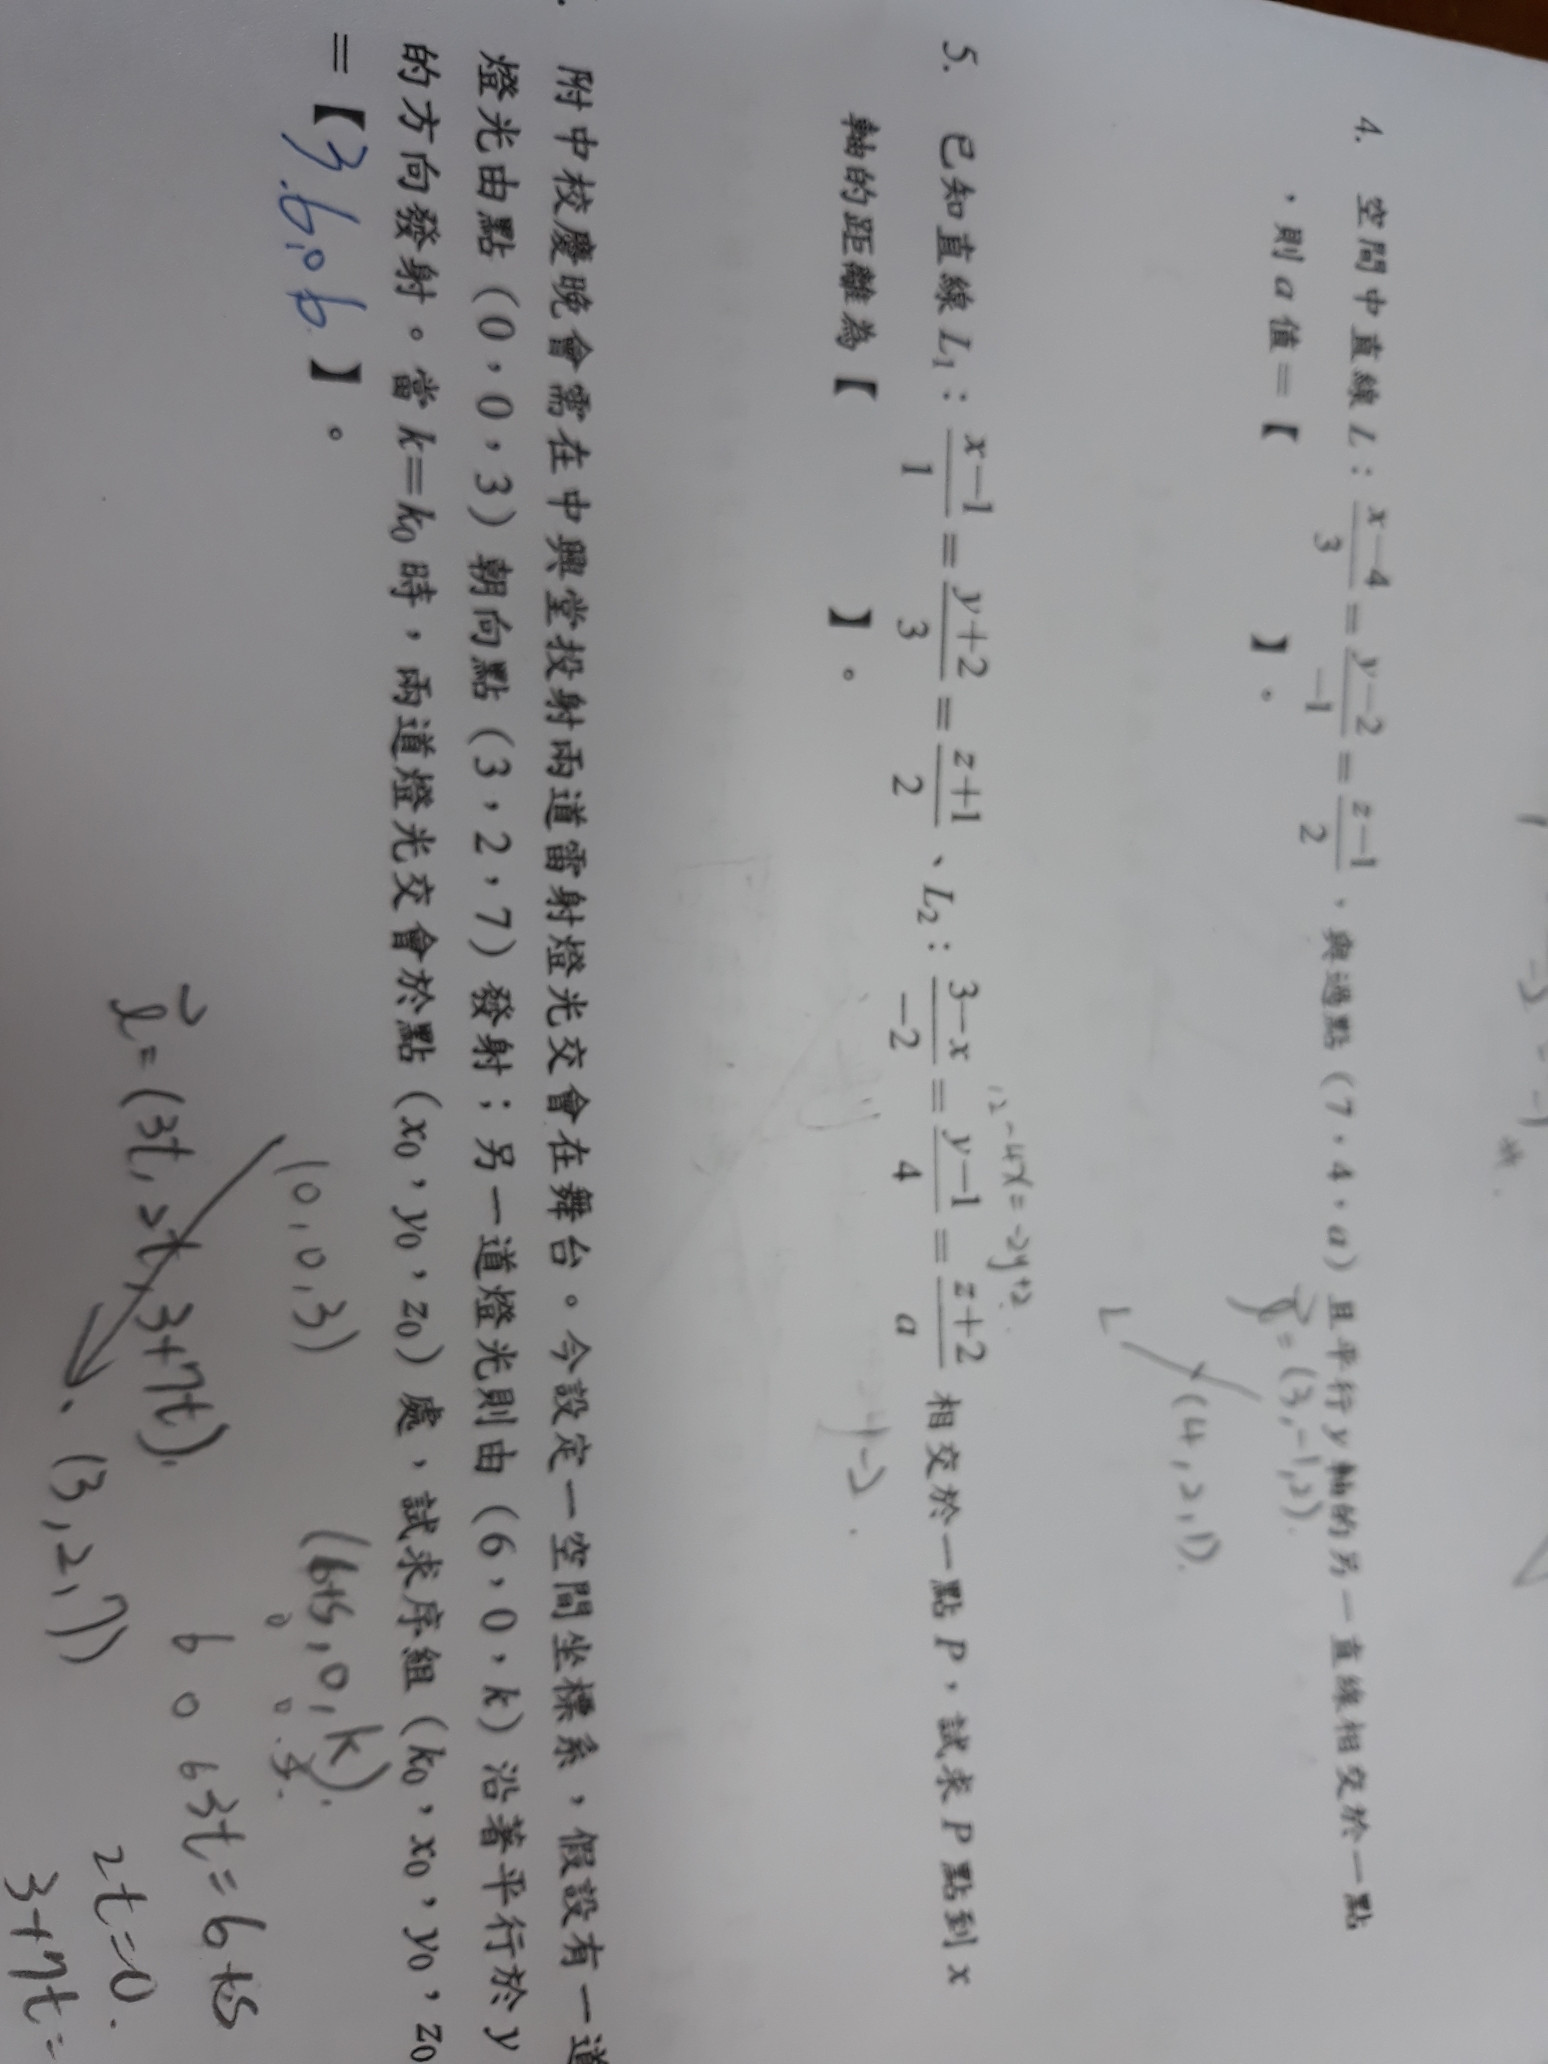 4. 空間中直線 L：\frac{x-4}{3}=\frac{y-2}{-1}=\frac{z-1}{2}，與過點（7，4，a）且平行 y 軸的另一直線相交於一點
，則 a 值＝【　　】。
\vec{l}=(3,-1,2).
L
(4,2,1).
12-4x=-2y+2.
5. 已知直線 L₁：\frac{x-1}{1}=\frac{y+2}{3}=\frac{z+1}{2}、L₂：\frac{3-x}{-2}=\frac{y-1}{4}=\frac{z+2}{a} 相交於一點 P，試求 P 點到 x
軸的距離為【　　】。
附中校慶晚會需在中興堂投射兩道雷射燈光交會在舞台。今設定一空間坐標系，假設有一道
燈光由點（0，0，3）朝向點（3，2，7）發射；另一道燈光則由（6，0，k）沿著平行於 y
的方向發射。當 k=k₀ 時，兩道燈光交會於點（x₀，y₀，z₀）處，試求序組（k₀，x₀，y₀，z₀
＝【3.6,0 6.】。
(0,0,3)
(6+s,0,k).
\vec{l}=(3t,2t,3+7t).
(3,2,7)
6 0 6
3t=6+s
2t=0.
3+7t=